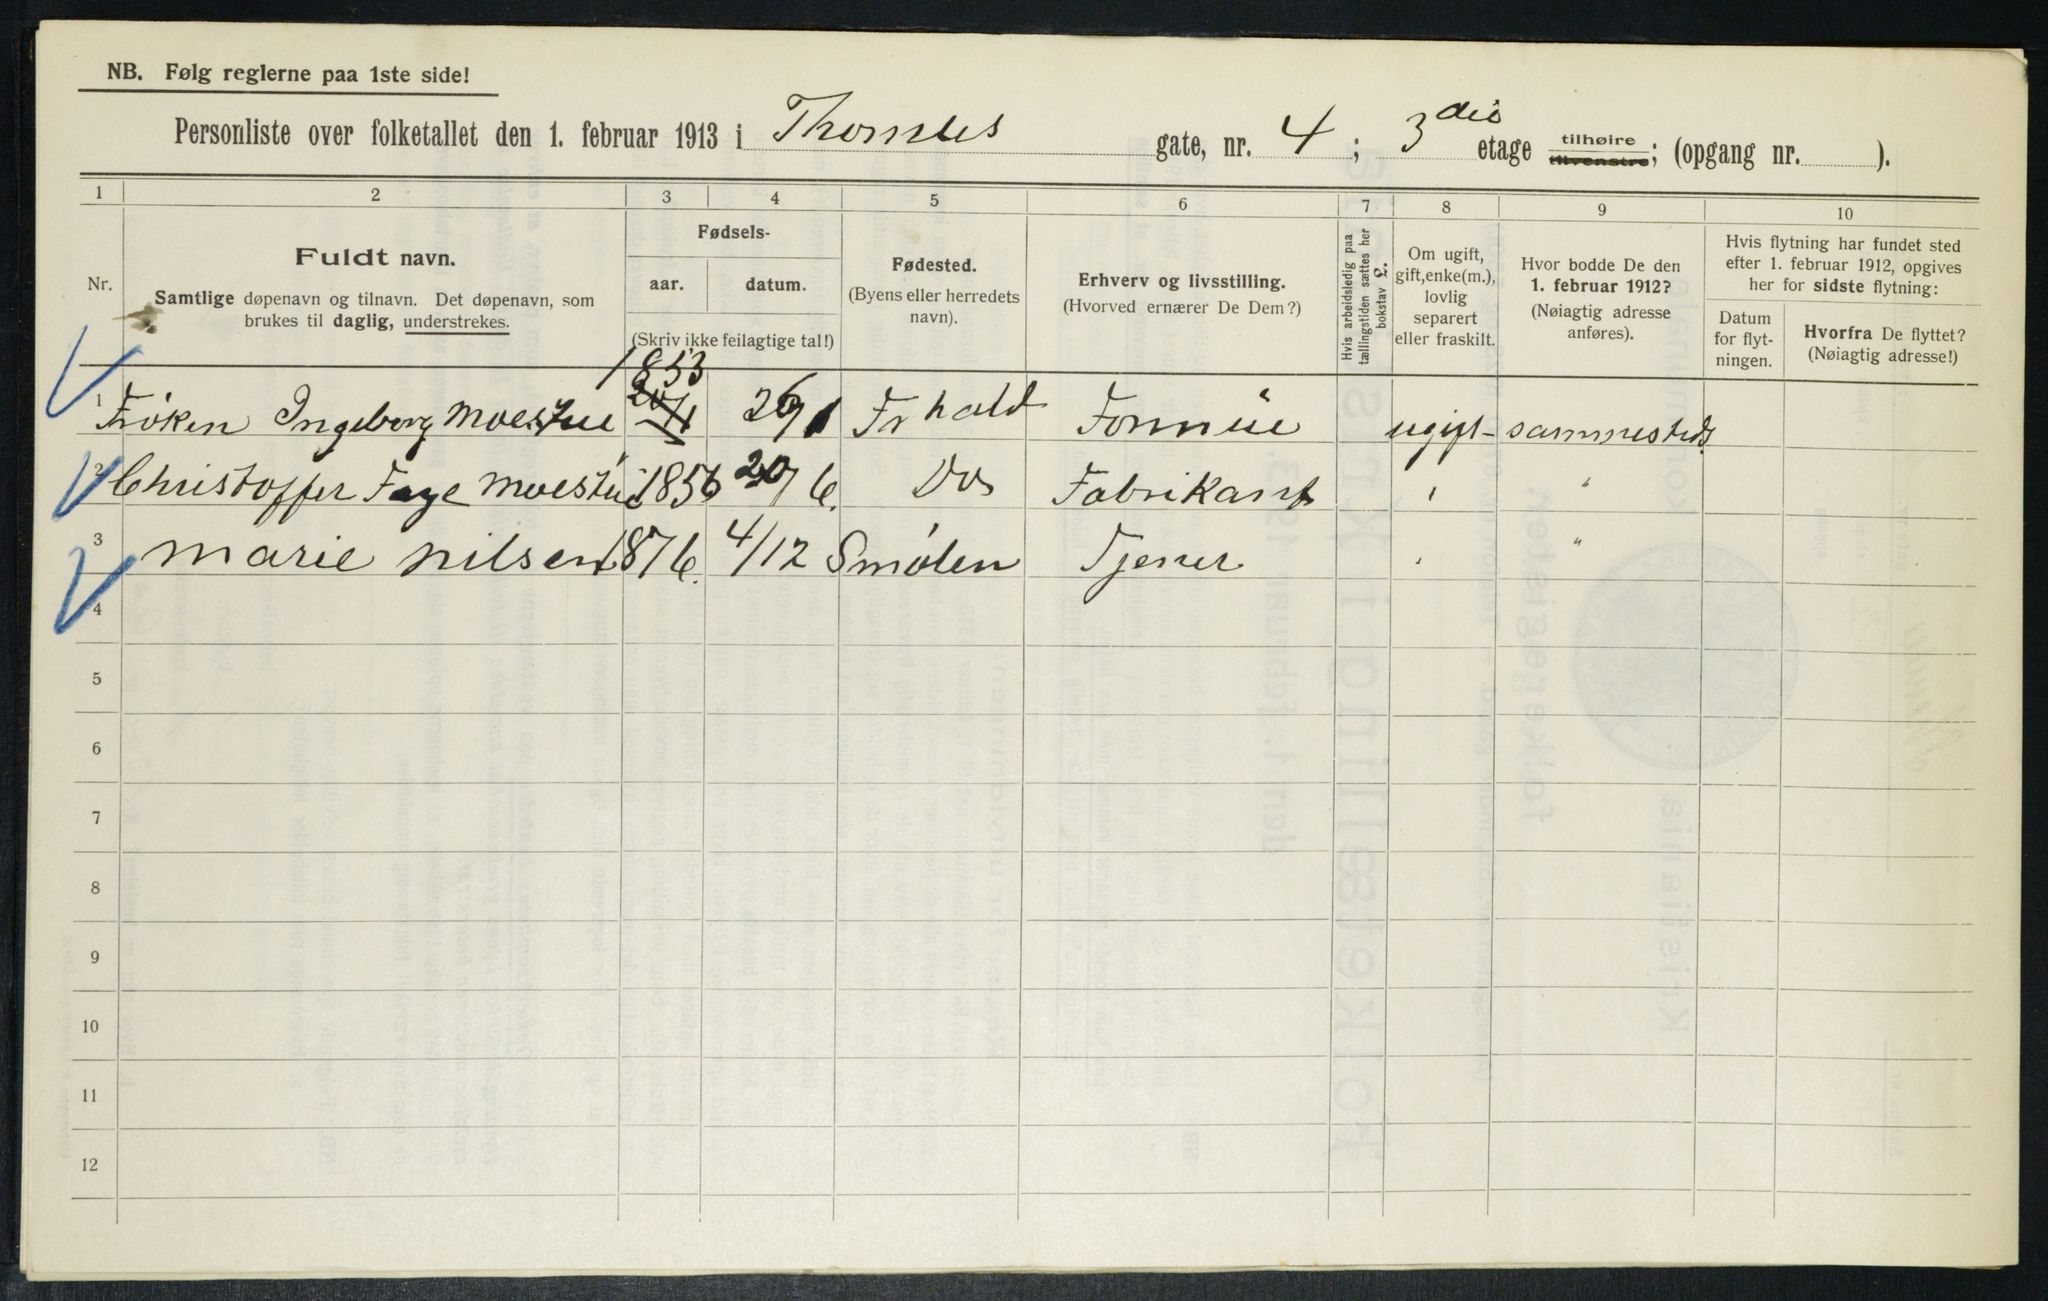 NB. Følg reglerne paa 1ste side!
Personliste over folketallet den 1. februar 1913 i Thomles gate, nr. 4 ; 3die etage tilhøire tilvenstre; (opgang nr. ).
1 2 3 4 5 6 7 8 9 10
Nr.
Fuldt navn.
Samtlige døpenavn og tilnavn. Det døpenavn, som
brukes til daglig, understrekes.
Fødsels-
aar. datum.
(Skriv ikke feilagtige tal!)
Fødested.
(Byens eller herredets
navn).
Erhverv og livsstilling.
(Hvorved ernærer De Dem?)
Hvis arbeidsledig paa
tællingstiden sættes her
bokstav L.
Om ugift,
gift, enke(m.),
lovlig
separert
eller fraskilt.
Hvor bodde De den
1. februar 1912?
(Nøiagtig adresse
anføres).
Hvis flytning har fundet sted
efter 1. februar 1912, opgives
her for sidste flytning:
Datum
for flyt-
ningen.
Hvorfra De flyttet?
(Nøiagtig adresse!)
1 Frøken Ingeborg Moestue 1853 26/1 Fr hald Formüe ugift sammesteds
2 Christoffer Faye Moestue 1856 20/6. Do Fabrikant " "
3 Marie Nilsen 1876. 4/12 Smølen Tjener " "
4
5
6
7
8
9
10
11
12